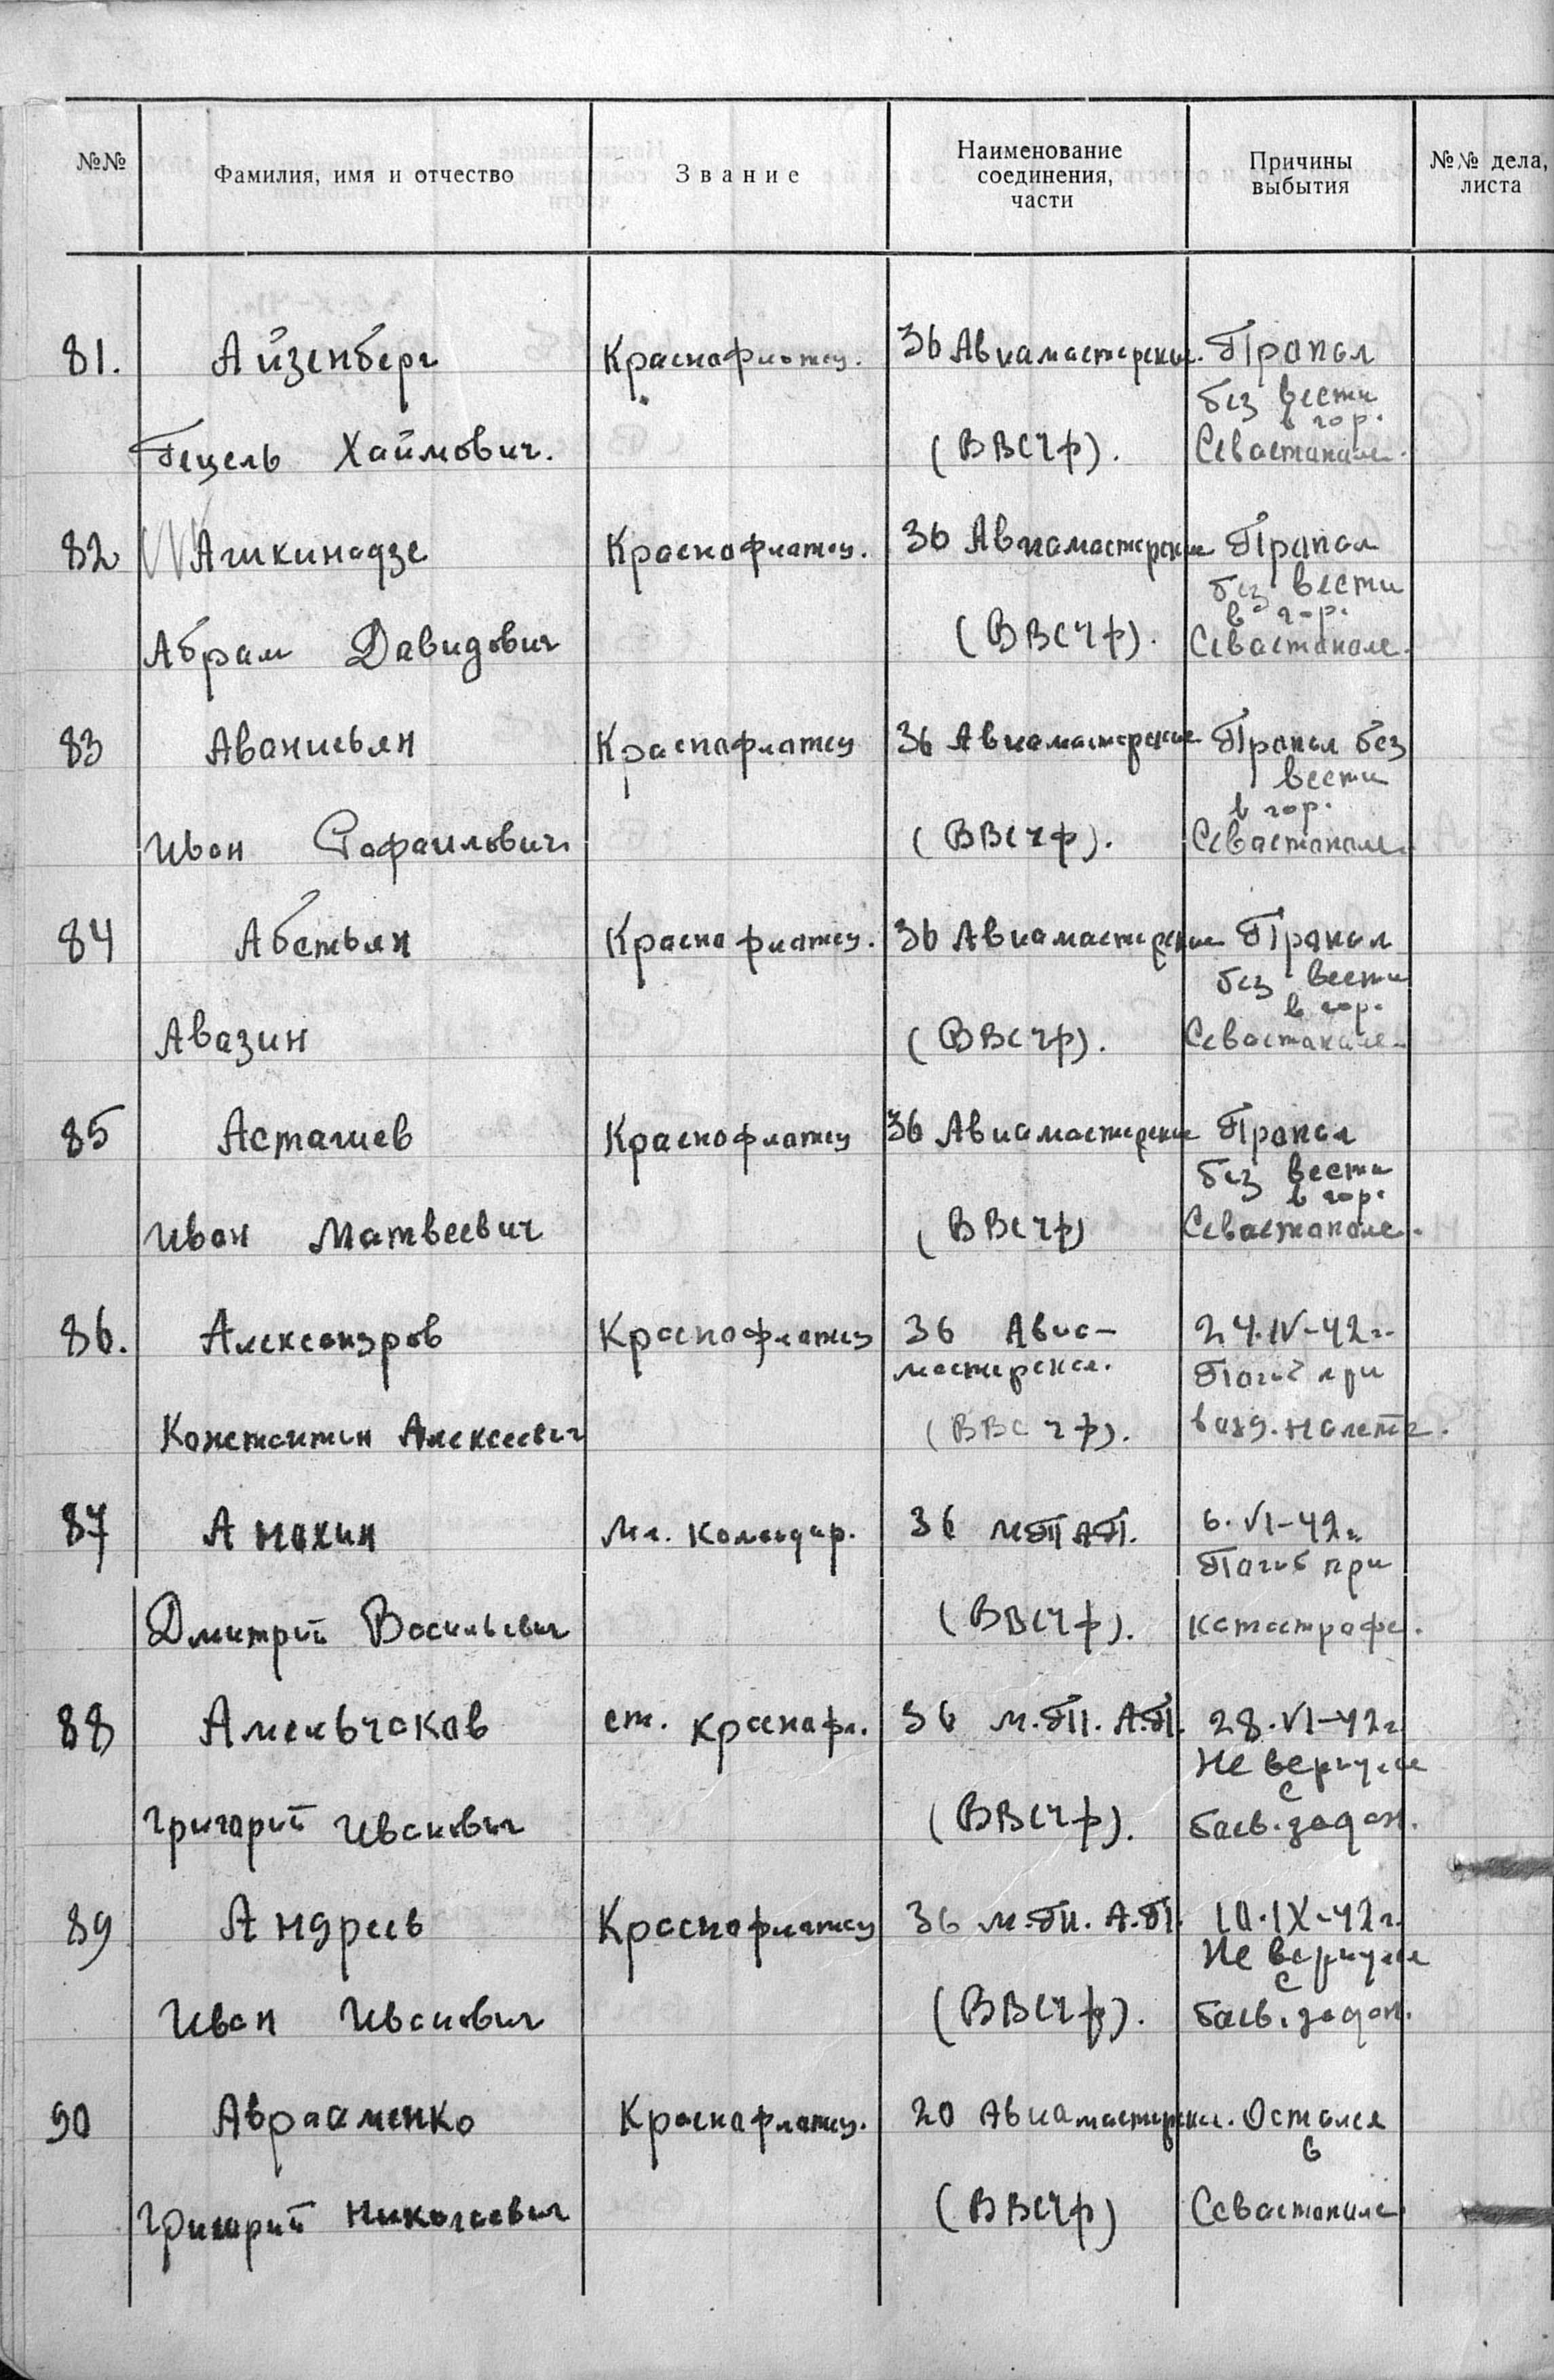 №№
Фамилия, имя и отчество
Звание
Наименование
соединения,
части
Причины
выбытия
№№ дела,
листа
81. Айзенберг Краснофлотец. 36 Авиамастерские. Пропал
без вести
в гор.
Гецель Хаймович. (ВВСЧФ). Севастополе.
82 Ашкинадзе Краснофлотец. 36 Авиамастерские Пропал
без вести
в гор.
Абрам Давидович (ВВСЧФ). Севастополе.
83 Аванисьян Краснофлотец 36 Авиамастерские Пропал без
вести
в гор.
Иван Рафаилович. (ВВСЧФ). Севастополе.
84 Абетьян Краснофлотец. 36 Авиамастерские Пропал
без вести
в гор.
Авазин (ВВСЧФ). Севастополе.
85 Асташев Краснофлотец 36 Авиамастерские Пропал
без вести
в гор.
Иван Матвеевич (ВВСЧФ) Севастополе.
86. Александров Краснофлотец 36 Авиа- 24.IV-42г.
мастерские. Погиб при
Константин Алексеевич (ВВСЧФ). возд. налете.
87 Анохин Мл. Командир. 36 МТАП. 6.VI-42г.
Погиб при
Дмитрий Васильевич (ВВСЧФ). катастрофе.
88 Амельчаков ст. краснофл. 36 М.Т.А.П. 28.VI-42г
Не вернулся
с
Григорий Иванович (ВВСЧФ). боев. задан.
89 Андреев Краснофлотец 36 М.Т.А.П. 10.IX-42г.
Не вернулся
с
Иван Иванович (ВВСЧФ). боев. задан.
90 Авраменко Краснофлотец. 20 Авиамастерские. Остался
в
Григорий Николаевич (ВВСЧФ) Севастополе